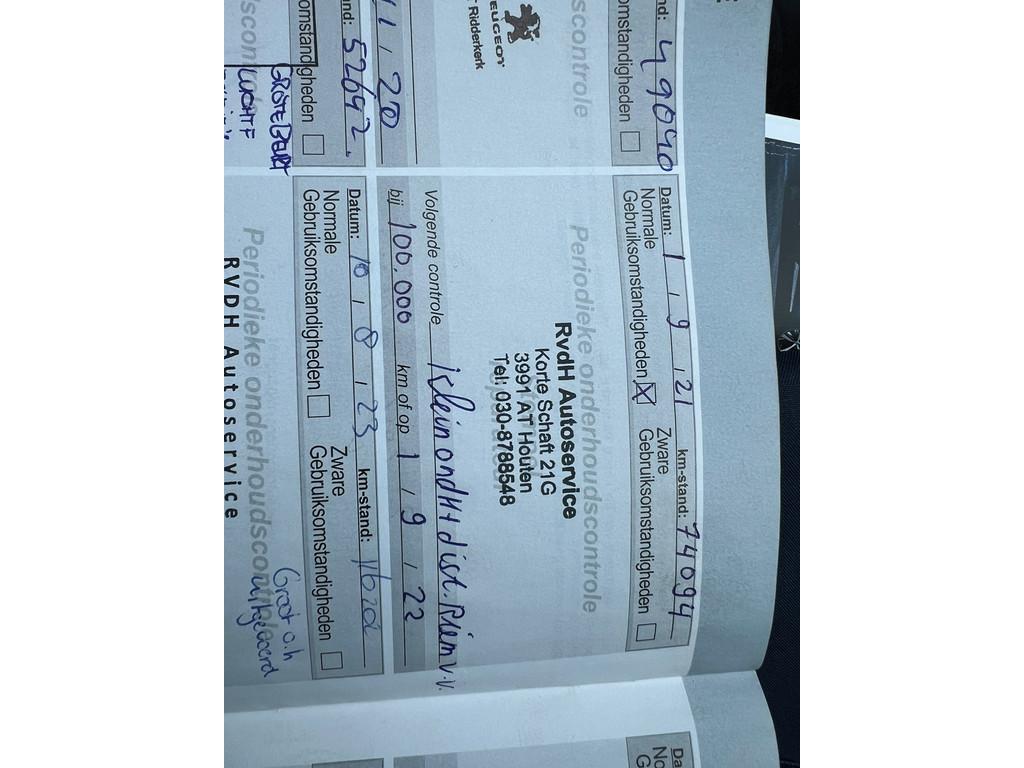 nd: 49040
omstandigheden
scontrole
PEUGEOT
Ridderkerk
11, 20
nd: 52692.
omstandigheden
GROTE BEURT
LUCHTF
Datum: 1, 9, 21 km-stand: 74094
Normale Gebruiksomstandigheden X
Zware Gebruiksomstandigheden
Periodieke onderhoudscontrole
RvdH Autoservice
Korte Schaft 21G
3991 AT Houten
Tel: 030-8788548
Volgende controle klein ondH + dist. Riem v.v.
bij 100.000 km of op 1, 9, 22
Datum: 10, 8, 23 km-stand:
Normale
Gebruiksomstandigheden
Zware
Gebruiksomstandigheden
Periodieke onderhoudscontrole
Groot o.h
uitgevoerd
RVDH Autoservice